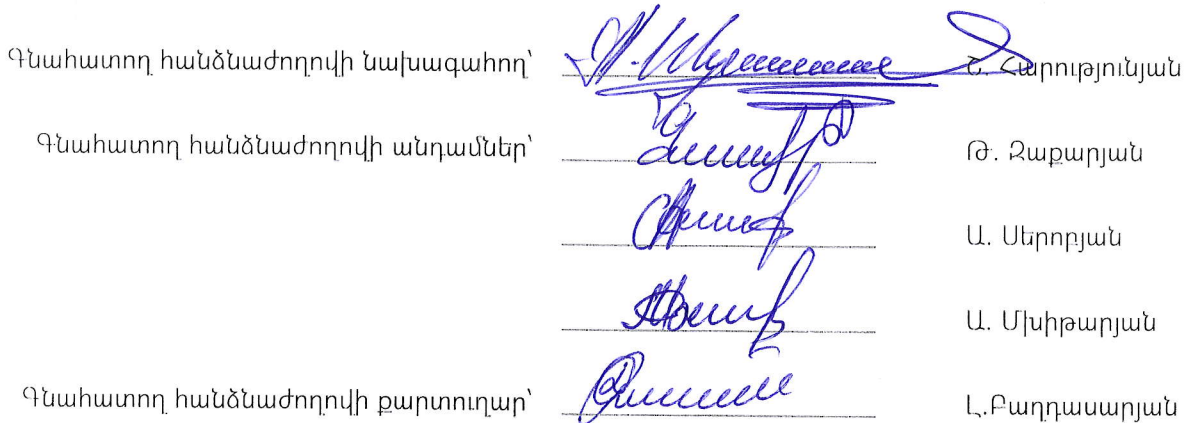 Գնահատող հանձնաժողովի նախագահող՝ Հարությունյան
Գնահատող հանձնաժողովի անդամներ՝ Թ. Զաքարյան
Ա. Սերոբյան
Ա. Մխիթարյան
Գնահատող հանձնաժողովի քարտուղար՝ Լ.Բաղդասարյան